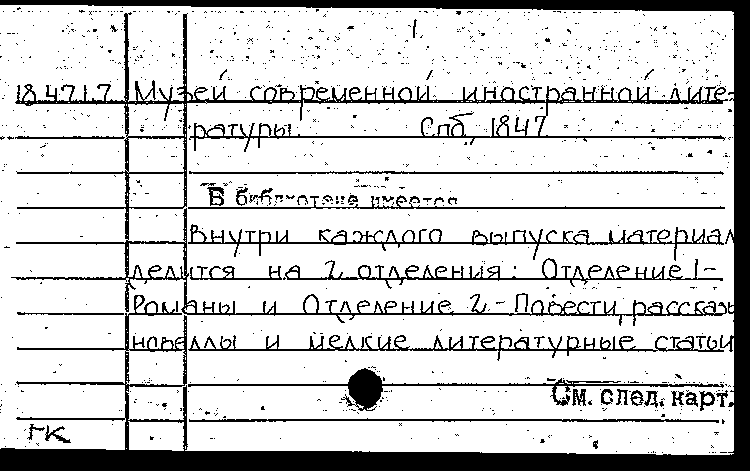 1
18.47.1.7 Музей современной иностранной лите-
ратуры. Спб., 1847
В библиотеке имеется
Внутри каждого выпуска материал
делится на 2 отделения: Отделение 1-
Романы и Отделение 2 - Повести, рассказы
новеллы и мелкие литературные статьи
См. след. карт.
ГК